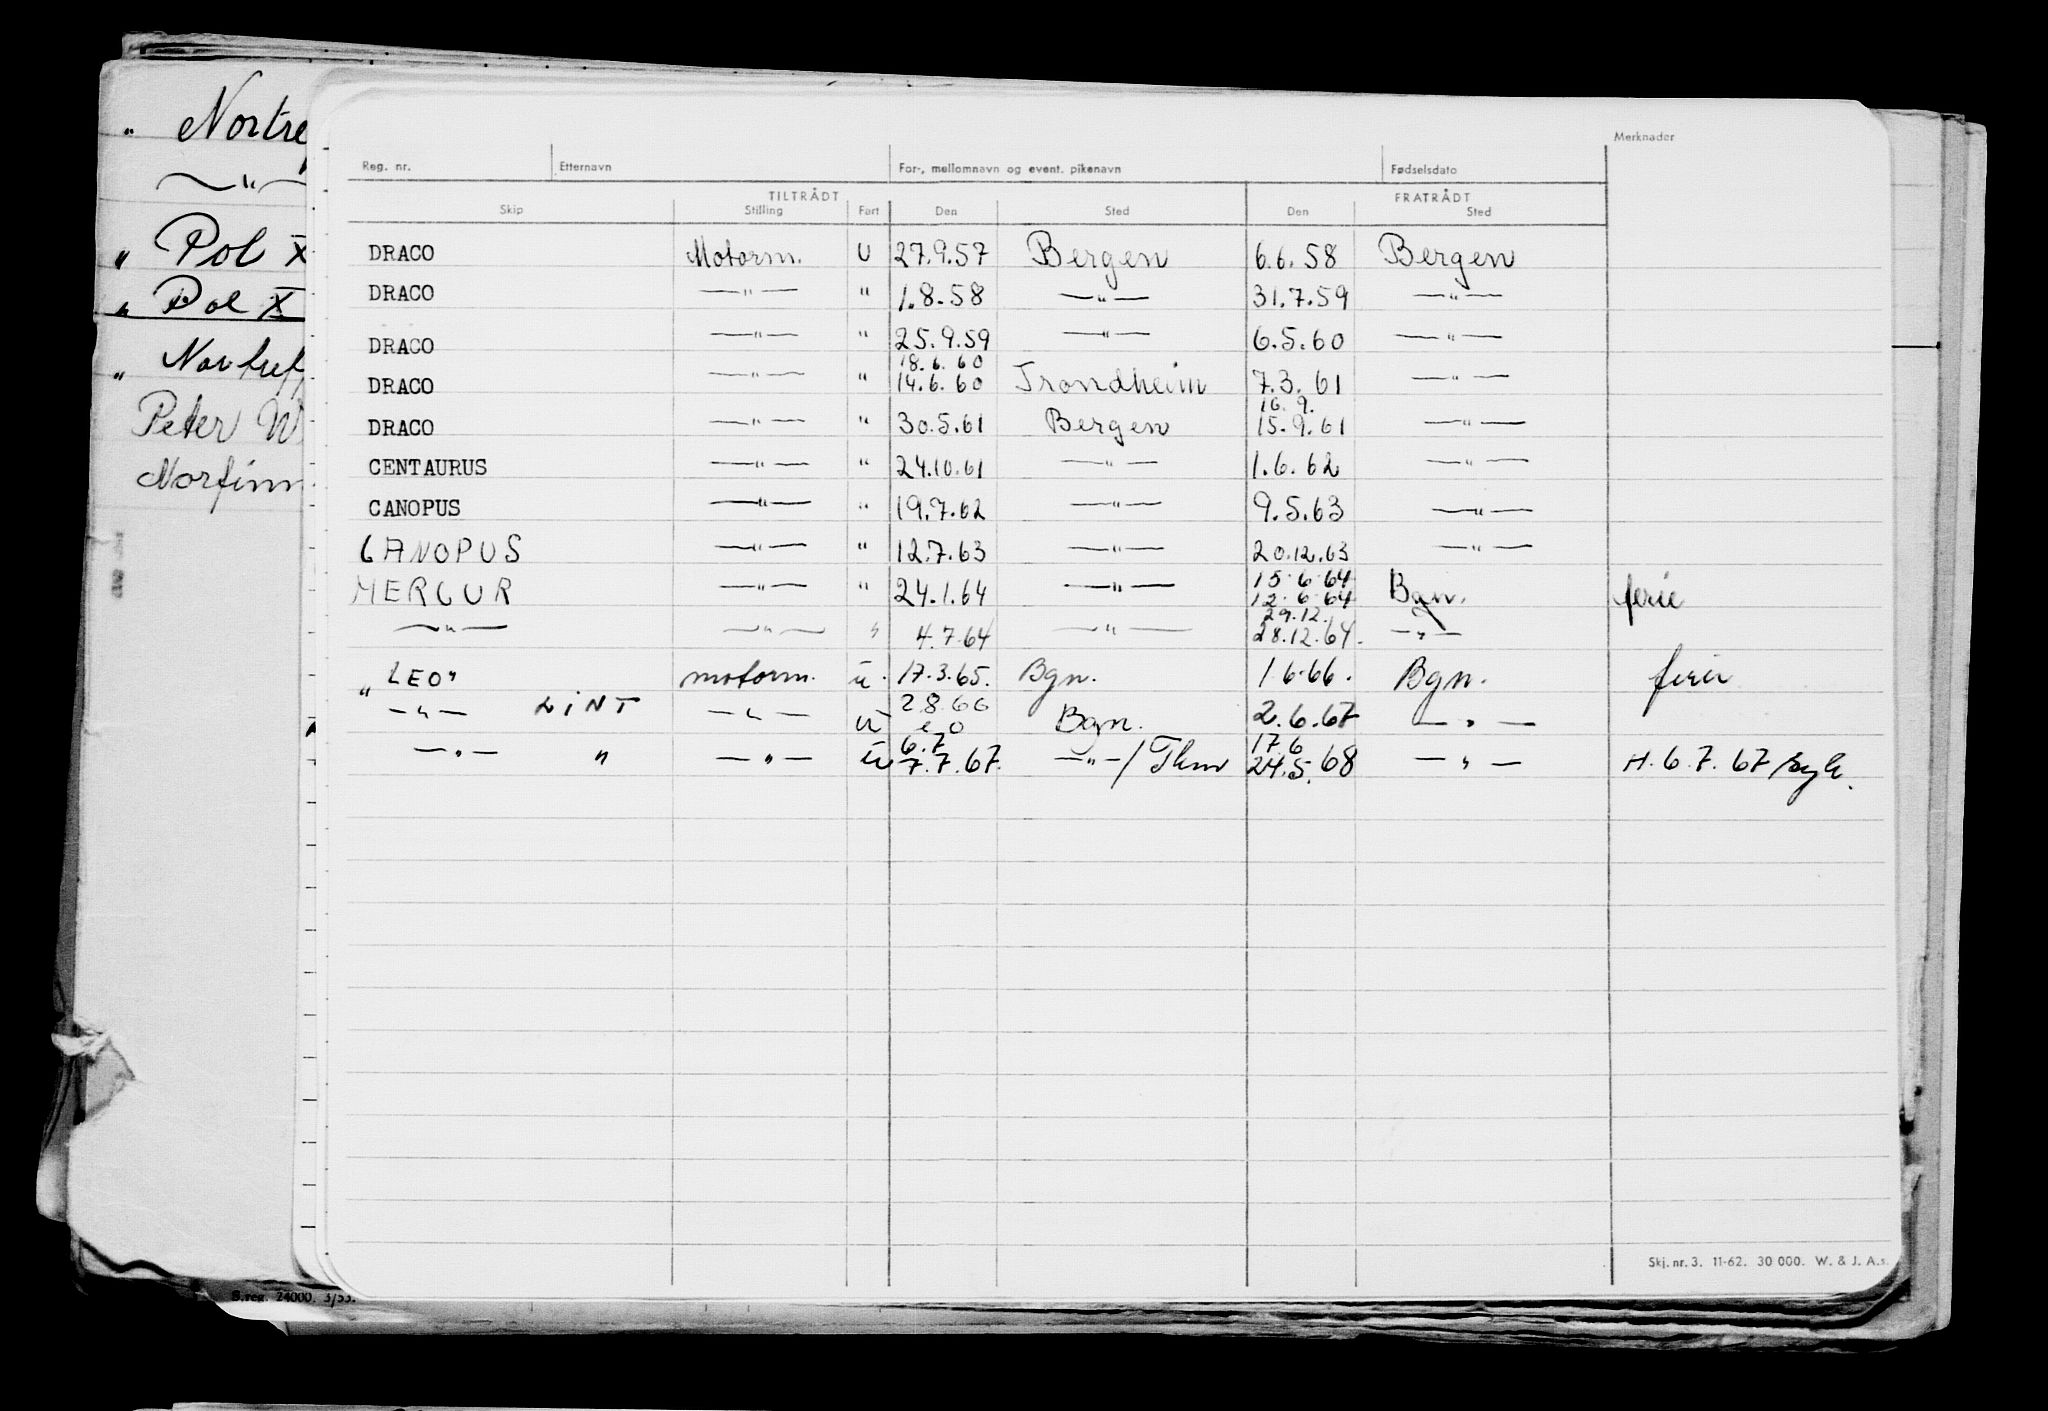 " Nortre
—"—
" Pol X
" Pol X
" Nortref
Peter W
Norfinn
Merknader
Reg. nr. Etternavn For-, mellomnavn og event. pikenavn Fødselsdato
TILTRÅDT FRATRÅDT
Skip Stilling Fart Den Sted Den Sted
DRACO Motorm. U 27.9.57 Bergen 6.6.58 Bergen
DRACO —"— " 1.8.58 —"— 31.7.59 —"—
DRACO —"— " 25.9.59 —"— 6.5.60 —"—
18.6.60
DRACO —"— " 14.6.60 Trondheim 7.3.61 —"—
16.9.
DRACO —"— " 30.5.61 Bergen 15.9.61 —"—
CENTAURUS —"— " 24.10.61 —"— 1.6.62 —"—
CANOPUS —"— " 19.7.62 —"— 9.5.63 —"—
CANOPUS —"— " 12.7.63 —"— 20.12.63 —"—
15.6.64
MERCUR —"— " 24.1.64 —"— 12.6.64 Bgn. ferie
29.12.
—"— —"— " 4.7.64 —"— 28.12.64. —"—
"LEO" motorm. u. 17.3.65. Bgn. 1.6.66. Bgn. ferie
2.8.66
—"— LINT —"— u Bgn. 2.6.67 —"—
6.7 17.6
—"— " —"— u 7.7.67. —"—/Thm 24.5.68 —"— H.6.7.67/syk.
Skj. nr. 3. 11-62. 30 000. W. & J. A.s.
S.reg. 24000. 3/53.